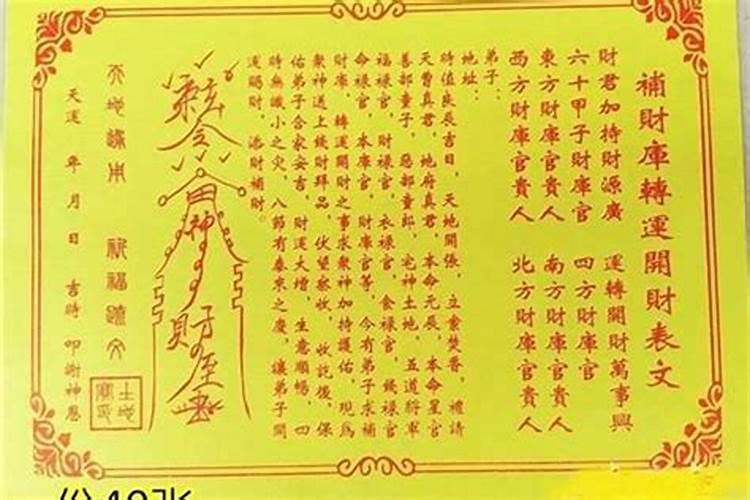 補財庫轉運開財表文
財君加持財源廣 運轉開財萬事興
六十甲子財庫官 四方財庫官
東方財庫官貴人 南方財庫官貴人
西方財庫官貴人 北方財庫官貴人
弟子：
地址：
時值良辰吉日，天地開張，立案焚香，禮請
天曹真君，地府真君，本命元辰，本命星官
善部童子，惡部童郎，宅神土地，五道將軍
福祿官，財祿官，衣祿官，食祿官，錢祿官
命祿官，本庫官，財庫官等，今有弟子求補
財庫，轉運開財之事求眾神加持護佑，現為
眾神送上錢財拜品，伏望察收，收訖後，保
佑弟子合家安吉，財運大增，生意順暢，四
時無纖小之災，八節有泰來之慶，讓弟子開
運賜財，添財補財。
祈福疏文
天運 年 月 日 吉時 叩謝神恩
份40张